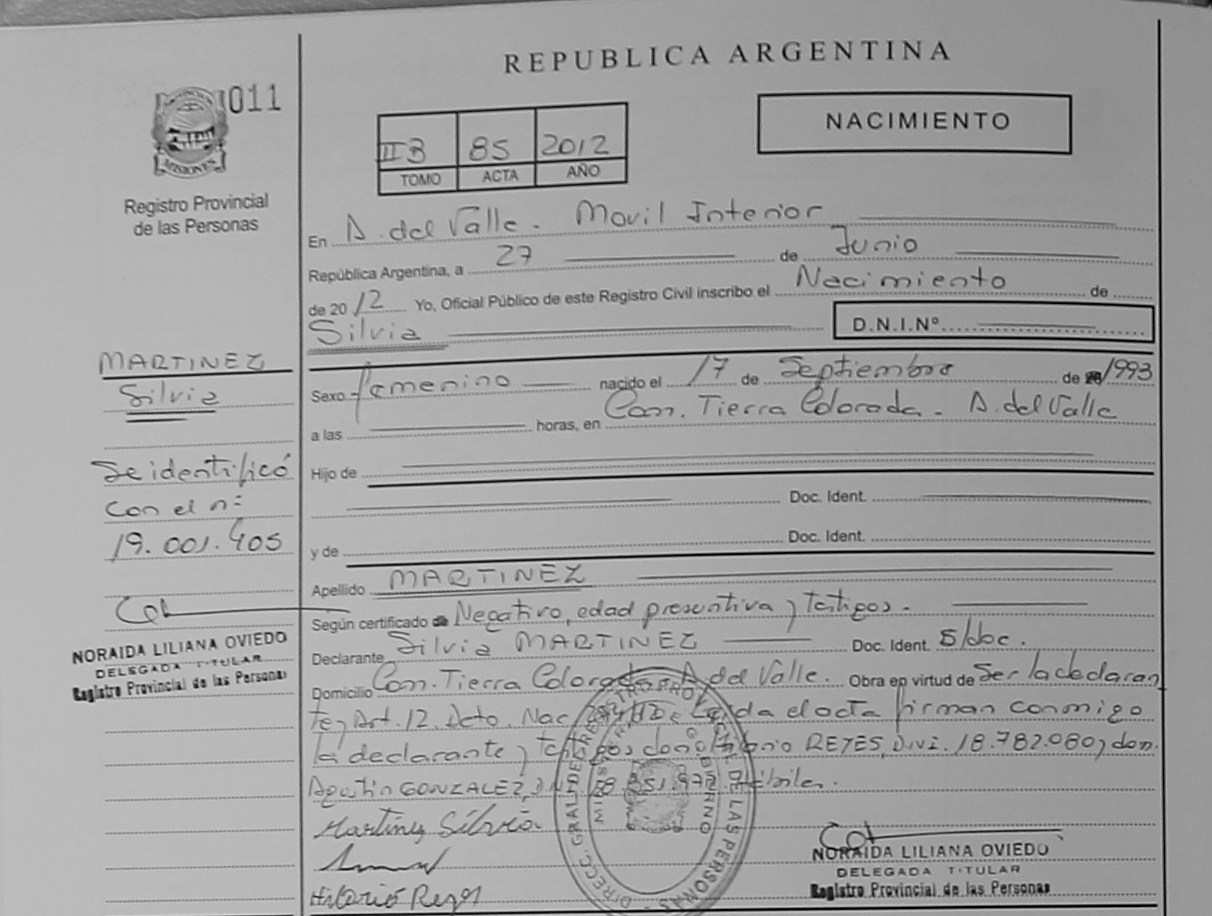 REPUBLICA ARGENTINA
011
NACIMIENTO
III B 85 2012
TOMO ACTA AÑO
MISIONES
Registro Provincial
de las Personas
En A. del Valle. Movil Interior
República Argentina, a 27 de Junio
de 2012 Yo, Oficial Público de este Registro Civil inscribo el Nacimiento de
Silvia D.N.I.Nº
MARTINEZ
Silvia
Sexo femenino nacido el 17 de Septiembre de 1993
a las horas, en Com. Tierra Colorada. A. del Valle
Hijo de
Doc. Ident.
y de Doc. Ident.
Se identificó
con el nº
19.001.405
Apellido MARTINEZ
Según certificado de Negativo, edad presuntiva y testigos.
Declarante Silvia MARTINEZ Doc. Ident. S/doc.
Domicilio Com. Tierra Colorada A. del Valle. Obra en virtud de Ser la declaran
te y Art. 12. Dcto. Nac. Leida el acta firman conmigo
la declarante y testigos don REYES, D.N.I. 18.782.080 y don
Agustin GONZALEZ, D.N.I.
NORAIDA LILIANA OVIEDO
DELEGADA TITULAR
Registro Provincial de las Personas
Martinez Silvia
Hilario Reyes
NORAIDA LILIANA OVIEDO
DELEGADA TITULAR
Registro Provincial de las Personas